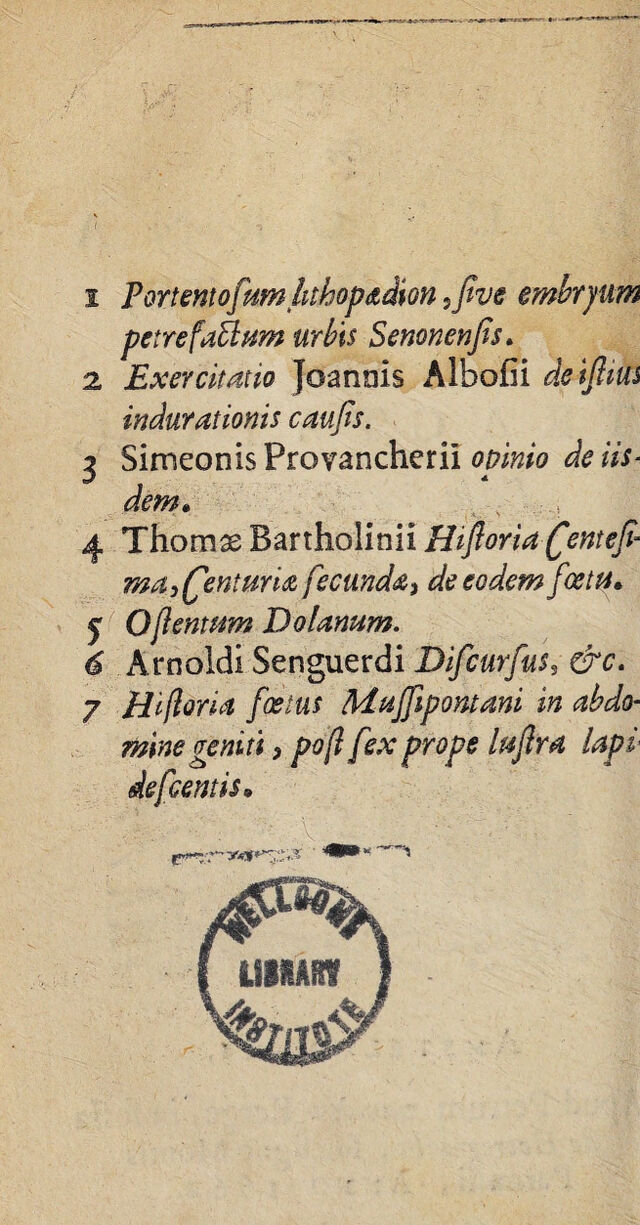 1 Portentoſum lithopædion, ſive embryum
petrefactum urbis Senonenſis.
2 Exercitatio Joannis Alboſii de iſtius
indurationis cauſis.
3 Simeonis Provancherii opinio de iis-
dem.
4 Thomæ Bartholinii Hiſtoria Centeſi-
ma, Centuriæ ſecundæ, de eodem fœtu.
5 Oſtentum Dolanum.
6 Arnoldi Senguerdi Diſcurſus, &c.
7 Hiſtoria fœtus Muſſipontani in abdo-
mine geniti, poſt ſex prope luſtra lapi-
deſcentis.
WELLCOME
LIBRARY
INSTITUTE